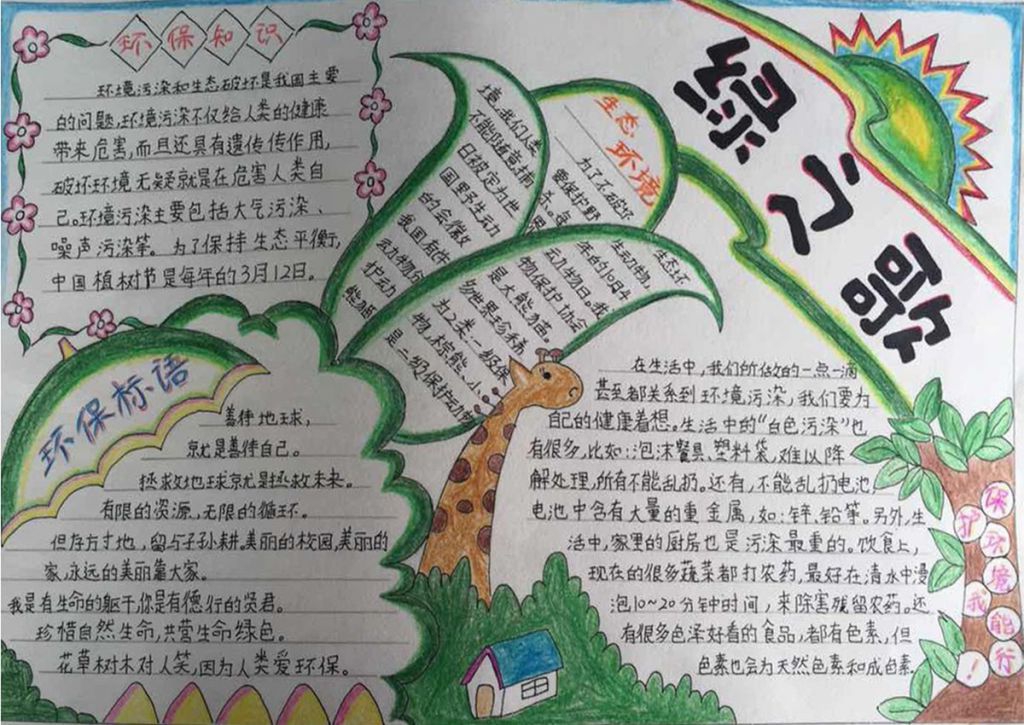 环保知识
环境污染和生态破坏是我国主要
的问题,环境污染不仅给人类的健康
带来危害,而且还具有遗传传作用,
破坏环境无疑就是在危害人类自
己。环境污染主要包括大气污染、
噪声污染等。为了保持生态平衡,
中国植树节是每年的3月12日。
绿之歌
生态环境
为了不破坏
生态环
境,我们人类
要保护野
生动物,
不能随意捕
杀。每
年的10月4
日被定为世
界
动物日。我
国野生动
物保护协会
的会徽
是大熊猫。
我国有许
多世界珍稀
动物分
为2类:一级保
护动
物,棕熊、小
能猫
是二级保护动物
环保标语
善待地球,
就是善待自己。
拯救地球就是拯救未来。
有限的资源,无限的循环。
但存方寸地,留与子孙耕。美丽的校园,美丽的
家,永远的美丽靠大家。
我是有生命的躯干,你是有德行的贤君。
珍惜自然生命,共营生命绿色。
花草树木对人笑,因为人类爱环保。
在生活中,我们所做的一点一滴
甚至都关系到环境污染,我们要为
自己的健康着想。生活中的“白色污染”也
有很多,比如:泡沫餐具、塑料袋,难以降
解处理,所有不能乱扔。还有,不能乱扔电池,
电池中含有大量的重金属,如:锌、铅等。另外,生
活中,家里的厨房也是污染最重的。饮食上,
现在的很多蔬菜都打农药,最好在清水中浸
泡10~20分钟时间,来除害残留农药。还
有很多色泽好看的食品,都有色素,但
色素也会为天然色素和成白素.
保护环境我能行!